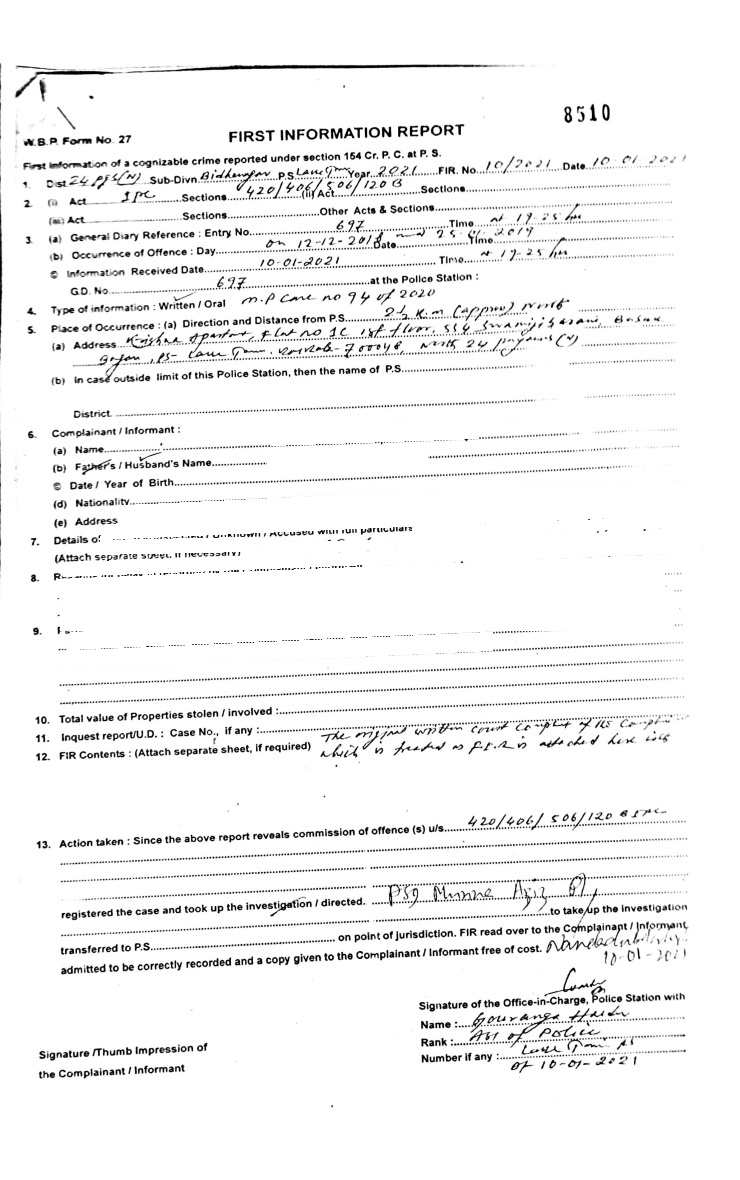 8510
W.B.P. Form No. 27
FIRST INFORMATION REPORT
First Information of a cognizable crime reported under section 154 Cr. P. C. at P. S.
1. Dist 24 PGS(N) Sub-Divn. Bidhannagar P.S. Year 2021 FIR. No 10/2021 Date 10-01-2021
2. (i) Act IPC Sections 420/406/506/120B (ii) Act Sections
(iii) Act Sections Other Acts & Sections
3. (a) General Diary Reference : Entry No. 697 Time at 19-25 hrs
(b) Occurrence of Offence : Day on 12-12-2018 and 25-4-2019 Date Time
© Information Received Date 10-01-2021 Time at 19-25 hrs
G.D. No. 697 at the Police Station :
4. Type of information : Written / Oral M.P Case no 94 of 2020
5. Place of Occurrence : (a) Direction and Distance from P.S. 2½ K.m (approx) North
(a) Address Krishna flat no 1C 1st floor, 554
PS- 700048, North 24
(b) In case outside limit of this Police Station, then the name of P.S.
District
6. Complainant / Informant :
(a) Name
(b) Father's / Husband's Name
© Date / Year of Birth
(d) Nationality
(e) Address
7. Details of / Unknown / Accused with full particulars
(Attach separate sheet, if necessary)
8.
9.
10. Total value of Properties stolen / involved :
11. Inquest report/U.D. : Case No., if any :
12. FIR Contents : (Attach separate sheet, if required) The original written court complaint of the
which is treated as F.I.R is attached here
13. Action taken : Since the above report reveals commission of offence (s) u/s 420/406/506/120 B IPC
registered the case and took up the investigation / directed. PSI Munna Aziz
to take up the Investigation
transferred to P.S. on point of jurisdiction. FIR read over to the Complainant / Informant,
admitted to be correctly recorded and a copy given to the Complainant / Informant free of cost.
10-01-2021
Signature of the Office-in-Charge, Police Station with
Name : Gouranga
Rank : ASI of Police
Number if any : PS
Signature /Thumb Impression of
of 10-01-2021
the Complainant / Informant